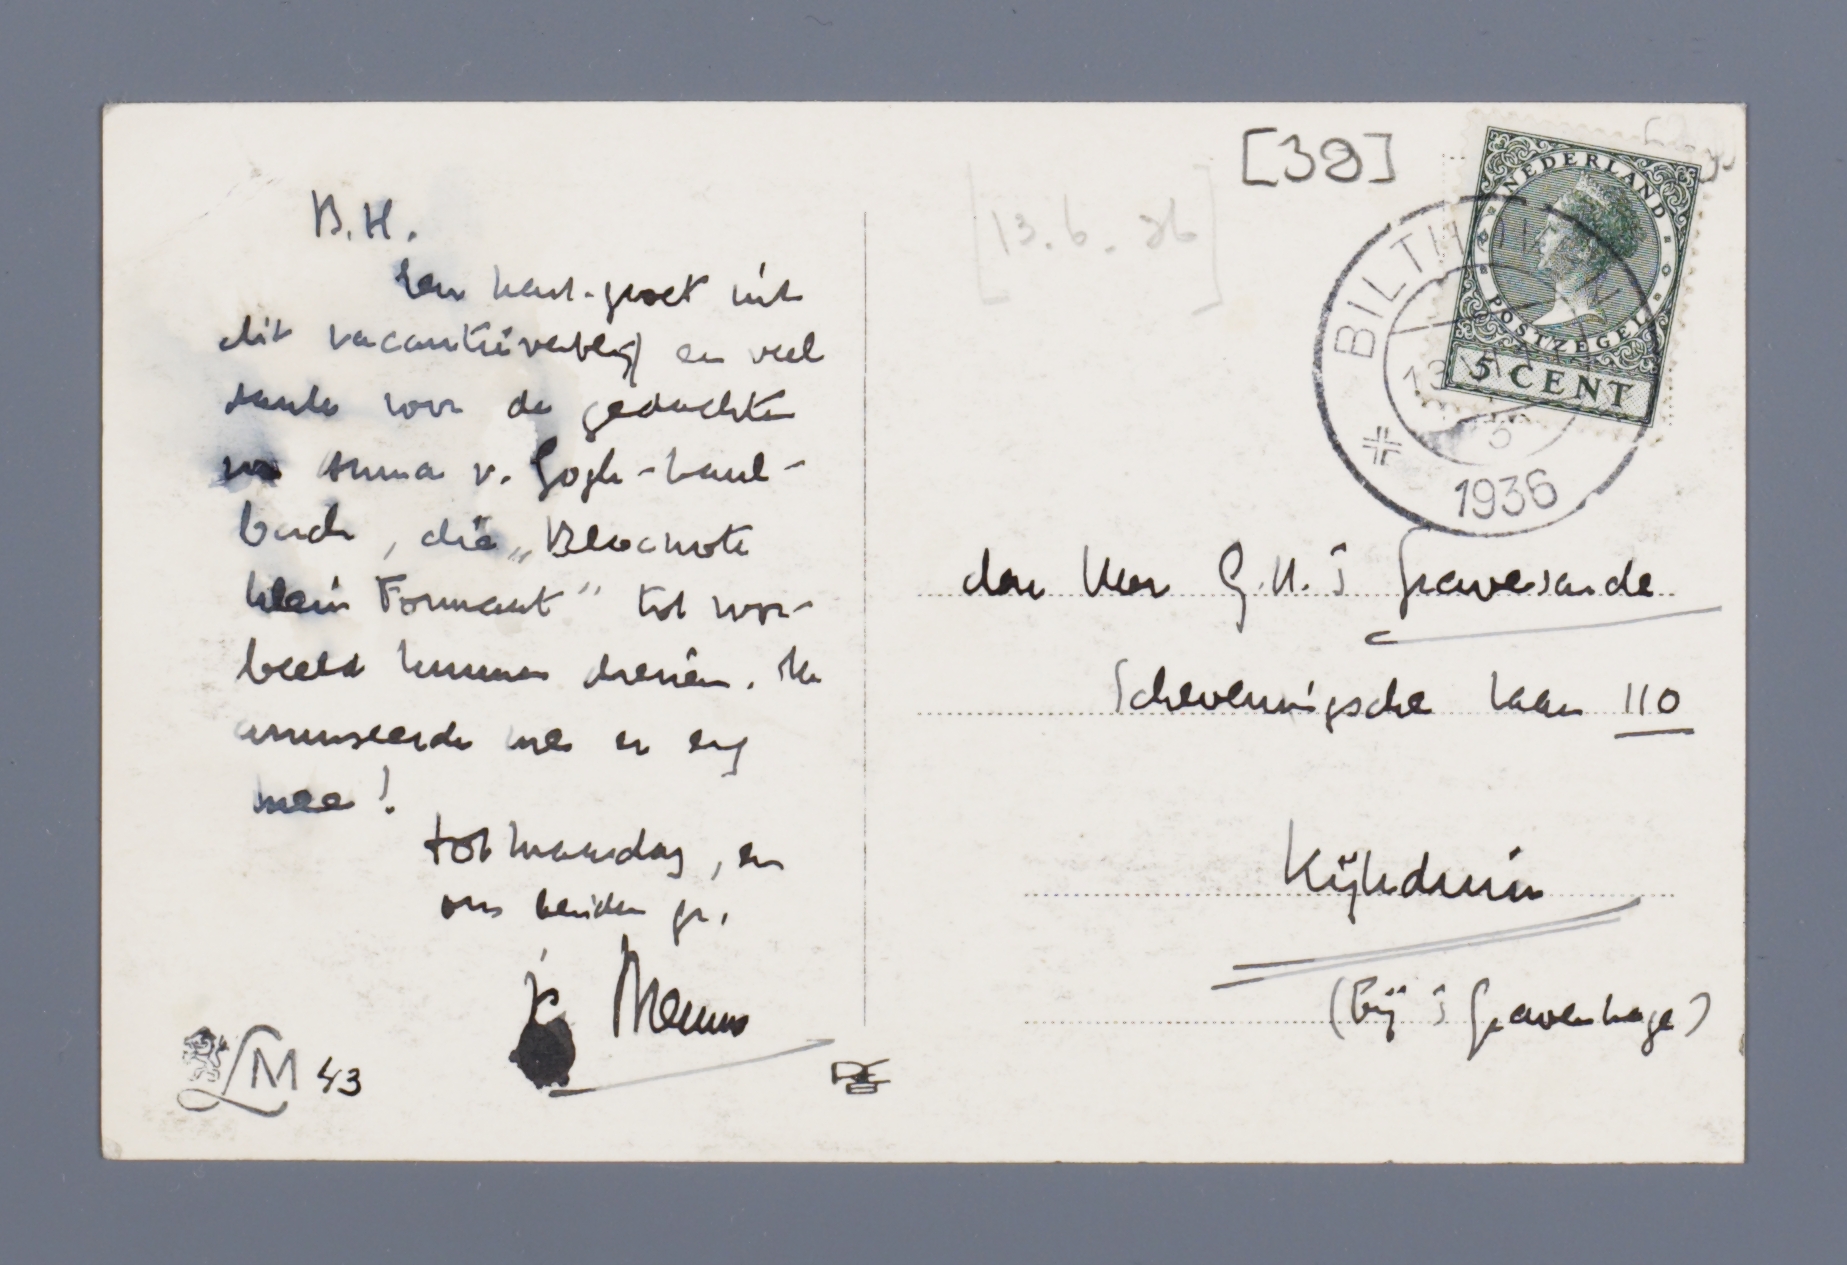 B.H.
Een hart. groet uit
dit vacantieverblijf en veel
dank voor de gedachten
van Anna v. Gogh-Kaul-
bach, die „Blocnote
klein Formaat" tot voor-
beeld kunnen dienen. Ik
amuseerde me er erg
mee!
tot Maandag, en
ons beider gr.
J. Greshoff
LM 43
[38]
[13.6.36]
NEDERLAND
POSTZEGEL
5 CENT
BILTHOVEN
13
1936
den Heer G.H. 's Gravesande
Scheveningsche laan 110
Kijkduin
(bij 's Gravenhage)